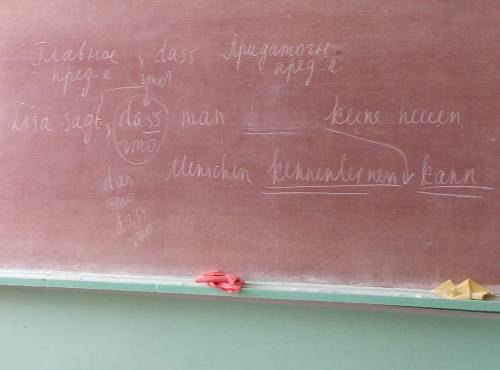 Главное , dass Придаточн.
пред-е что? пред-е
Lisa sagt, dass man keine neuen
что
Menschen kennenlernen kann
das
это
dass
что